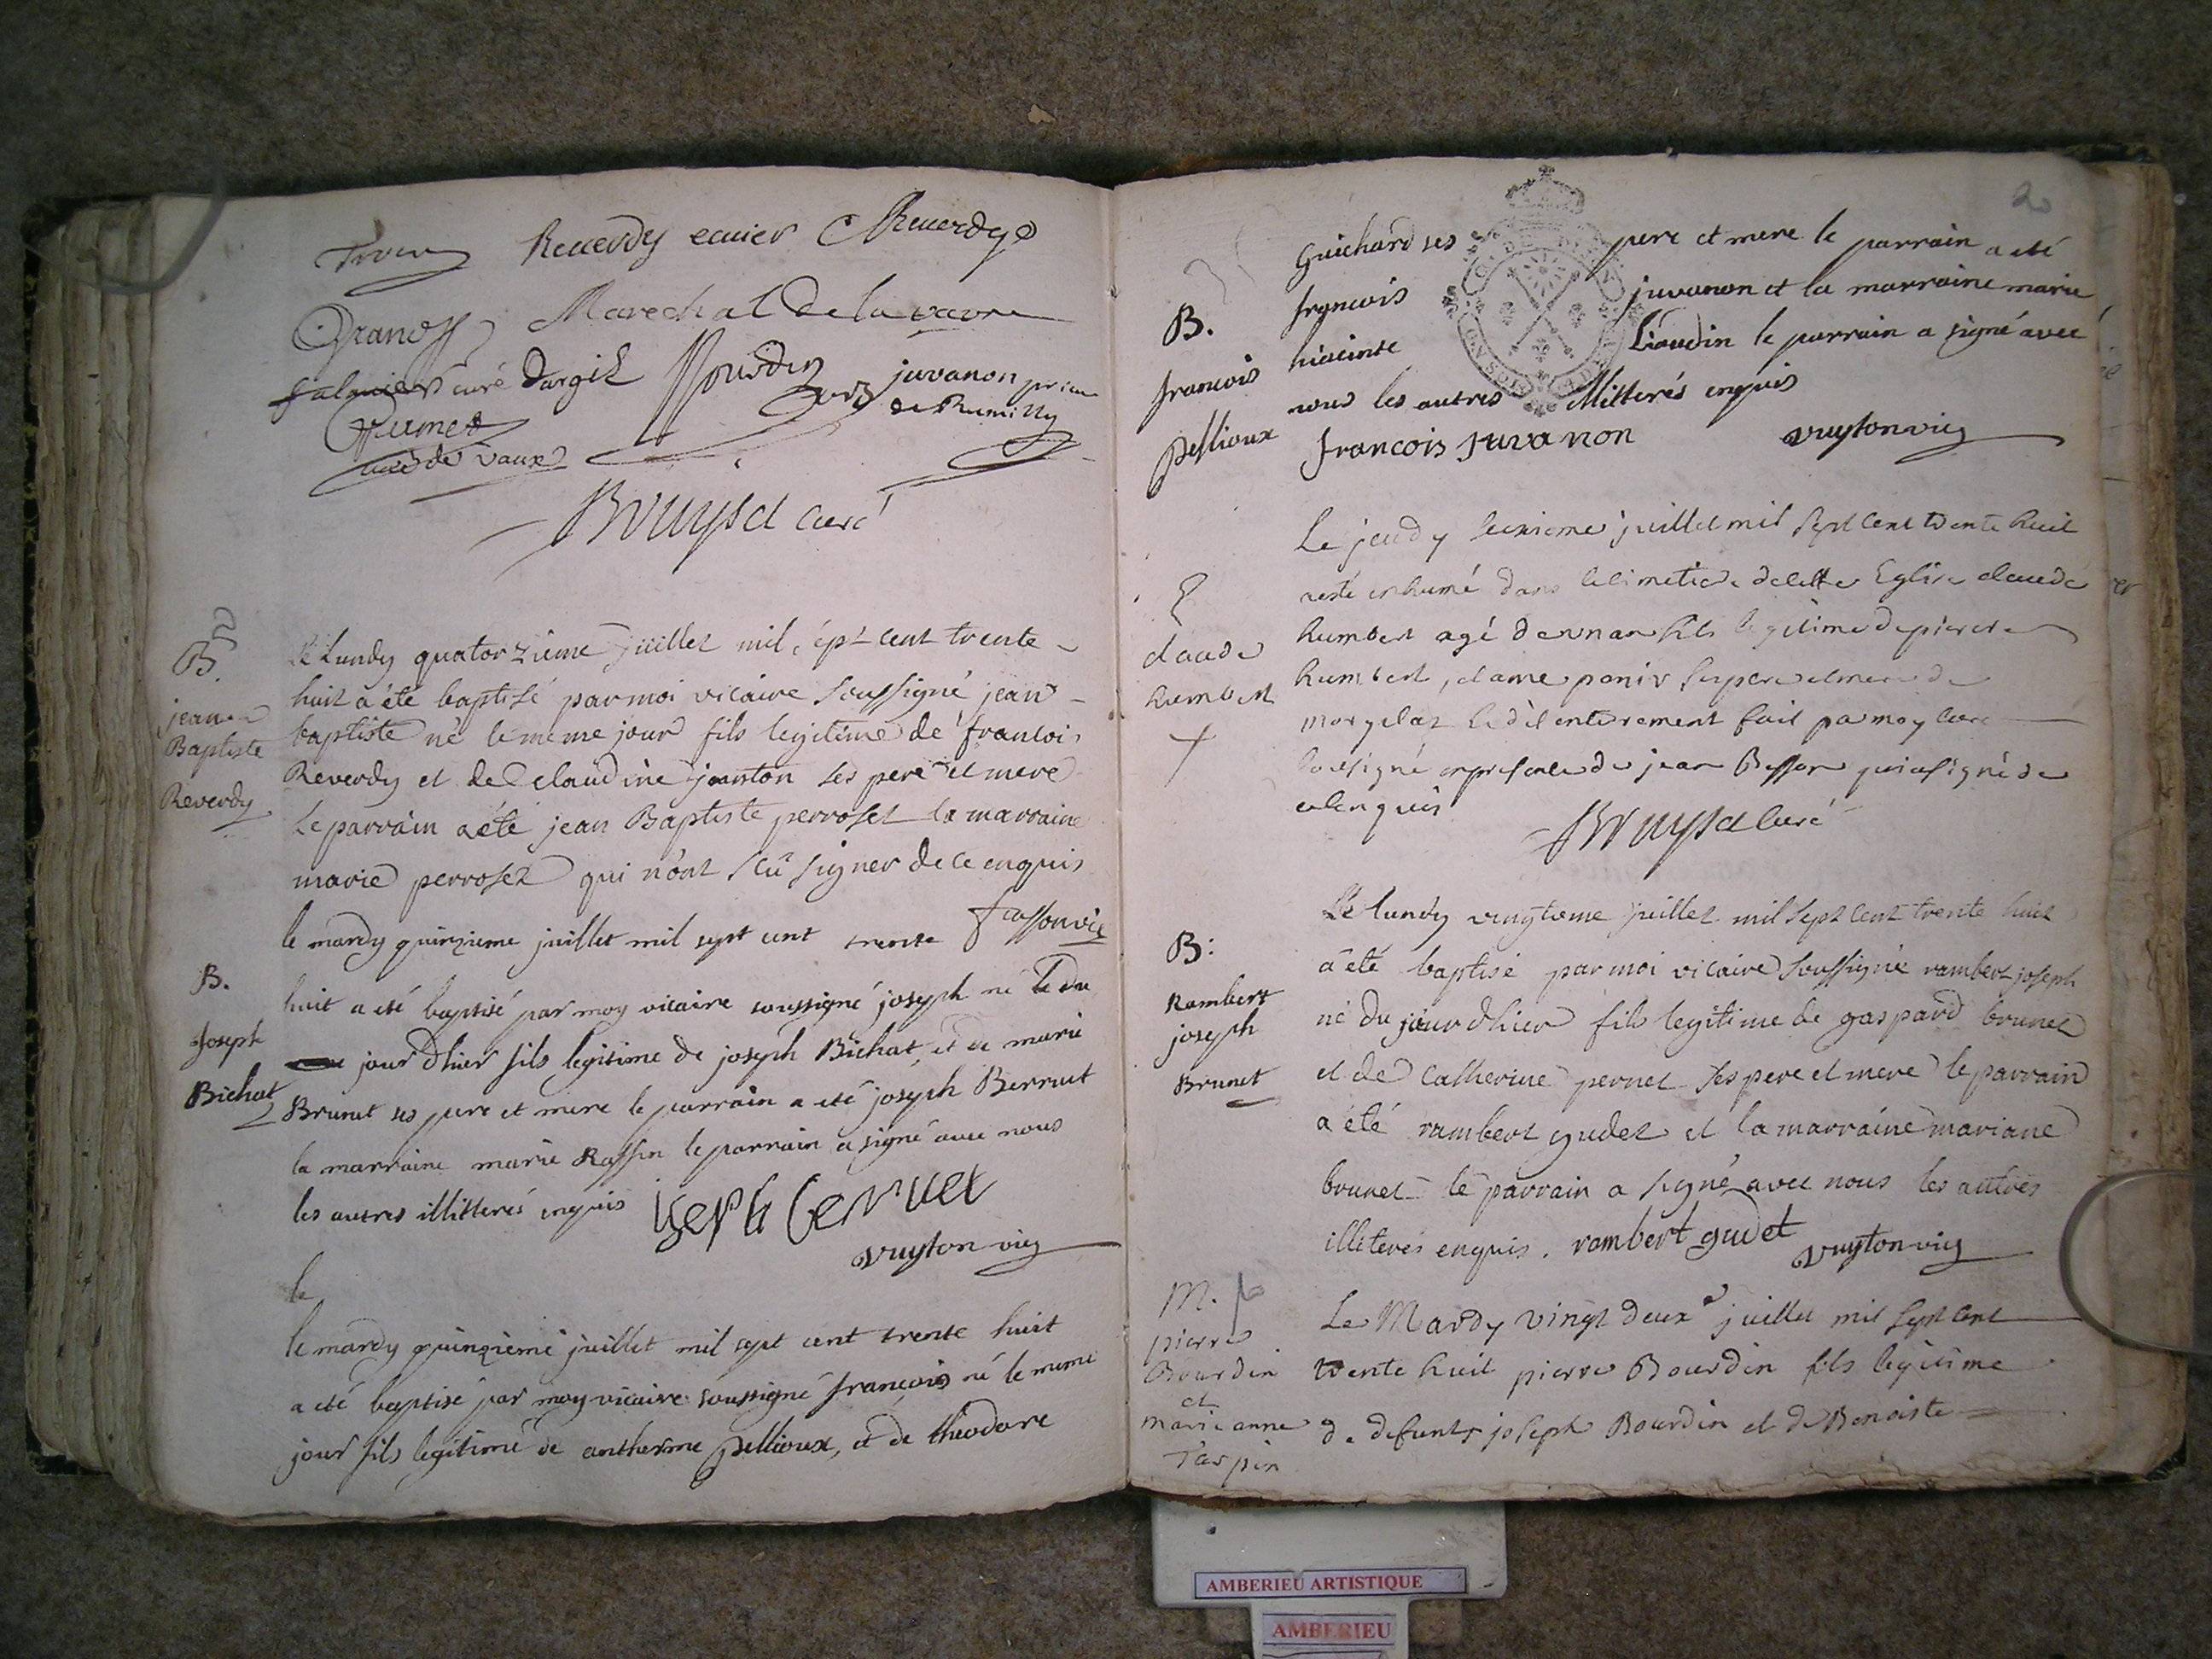 Reverdy ecuier Reverdy
Marechal de la vavre
curé Dargil Bourdin juvanon prieur
de Rumilly
curé de vaux
Bruyset curé
B.
jean
Baptiste
Reverdy
Le Lundy quatorzieme juillet mil sept cent trente
huit a été baptisé par moi vicaire soussigné jean
baptiste né le meme jour fils legitime de francois
Reverdy et de claudine janton ses pere et mere
Le parrain a été jean Baptiste perroset la marraine
marie perroset qui n'ont scû signer de ce enquis
B.
Joseph
Bichat
le mardy quinzieme juillet mil sept cent trente
huit a eté baptisé par moy vicaire soussigné joseph né le du
jour dhier fils legitime de joseph Bichat, et de marie
Brunet ses pere et mere le parrain a eté joseph Berruet
la marraine marie Rassin le parrain a signé avec nous
les autres illitterés enquis
vuyton vic
le
le mardy quinzieme juillet mil sept cent trente huit
a eté baptisé par moy vicaire soussigné françois né le meme
jour fils legitime de antherme pellioux, et de theodore
20
B.
francois
pellioux
Guichard ses pere et mere le parrain a eté
francois juvanon et la marraine marie
hiacinte Liaudin le parrain a signé avec
nous les autres illitterés enquis
francois juvanon vuyton vic
claude
humbert
Le jeudy juillet mil sept cent trente huit
a esté inhumé dans le cimetiere de cette Eglise claude
humbert agé d'un an fils legitime de pierre
humbert, et ses pere et mere de
le dit enterrement fait par moy curé
soussigné en presence de jean Besson qui a signé de
ce enquis
Bruyset curé
B:
Rambert
joseph
Brunet
Le lundy vingtieme juillet mil sept cent trente huit
a été baptisé par moi vicaire soussigné rambert joseph
né du jour d'hier fils legitime de gaspard brunet
et de catherine pernet ses pere et mere le parrain
a été rambert gudet et la marraine mariane
brunet le parrain a signé avec nous les autres
illiterés enquis. rambert gudet vuyton vic
M.
pierre
Bourdin
et
marie anne
Tarpin
Le Mardy vingt deux juillet mil sept cent
trente huit pierre Bourdin fils legitime
de defunts joseph Bourdin et de Benoiste
AMBERIEU ARTISTIQUE
AMBERIEU